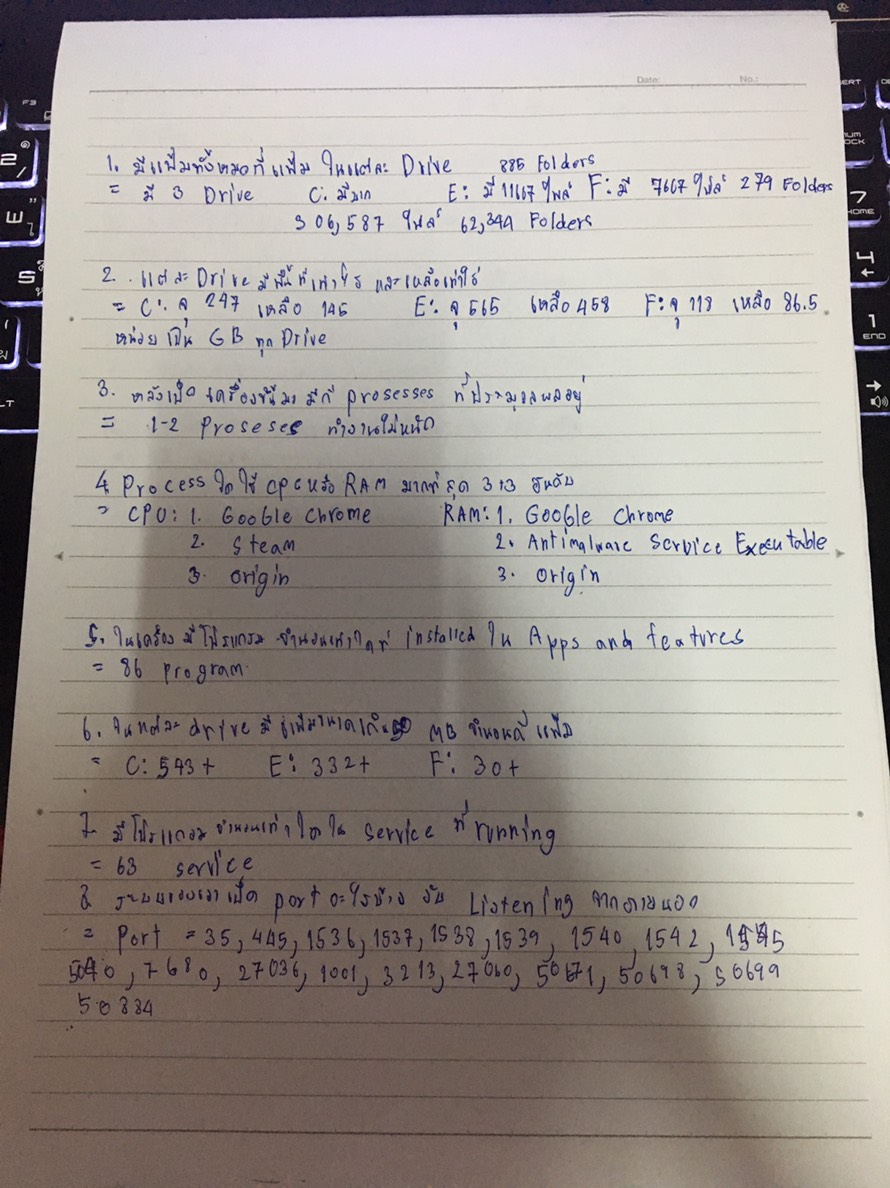 Date: No.:
1. มีแฟ้มทั้งหมดกี่แฟ้ม ในแต่ละ Drive 885 Folders
= มี 3 Drive C: มีมาก E: มี 11667 ไฟล์ F: มี 7667 ไฟล์ 279 Folders
306,587 ไฟล์ 62,344 Folders
2. แต่ละ Drive มีพื้นที่เท่าไร และเหลือเท่าไร
= C: จุ 247 เหลือ 145 E: จุ 565 เหลือ 458 F: จุ 118 เหลือ 86.5
หน่วยเป็น GB ทุก Drive
3. หลังเปิดเครื่องขึ้นมา มีกี่ prosesses ที่ประมวลผลอยู่
= 1-2 Proseses ทำงานไม่หนัก
4. Process ใดใช้ CPU หรือ RAM มากที่สุด 3 อันดับ
= CPU: 1. Google Chrome RAM: 1. Google Chrome
2. Steam 2. Antimalware Service Executable
3. Origin 3. Origin
5. ในเครื่องมีโปรแกรม จำนวนเท่าใดที่ installed ใน Apps and features
= 86 program.
6. ในแต่ละ drive มีแฟ้มขนาดเกิน MB จำนวนกี่แฟ้ม
= C: 593+ E: 332+ F: 30+
7. มีโปรแกรมจำนวนเท่าใดใน Service ที่ running
= 63 service
8 ระบบของเราเปิด port อะไรบ้าง รับ Listening จากภายนอก
= Port = 35, 445, 1536, 1537, 1538, 1539, 1540, 1542,
5040, 7680, 27036, 1001, 3213, 27060, 50698, 50699
50334